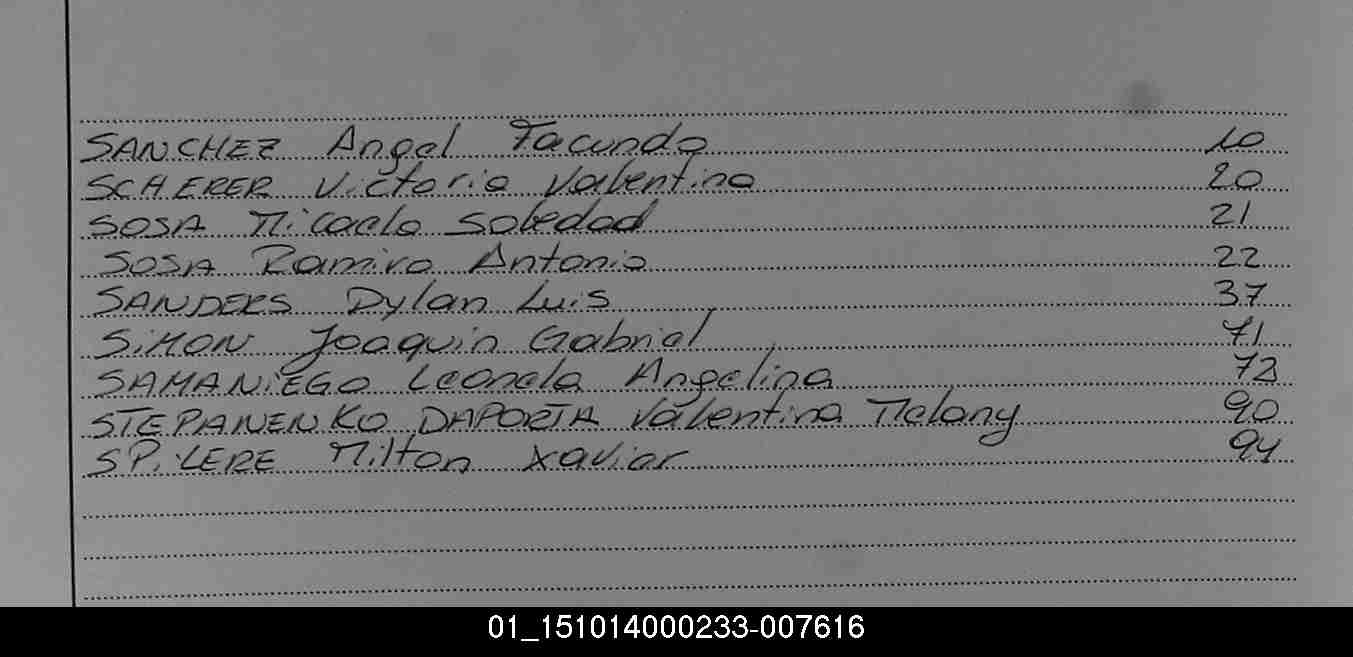 SANCHEZ Angel Facundo 10
SCHERER Victoria Valentina 20
SOSA Micaela Soledad 21
SOSA Ramiro Antonio 22
SANDERS Dylan Luis 37
SiMON Joaquin Gabriel 71
SAMANiEGO Leonela Angelina 72
STEPANENKO DAPORTA Valentina Melany 90
SPiLERE Milton Xavier 94
01_151014000233-007616